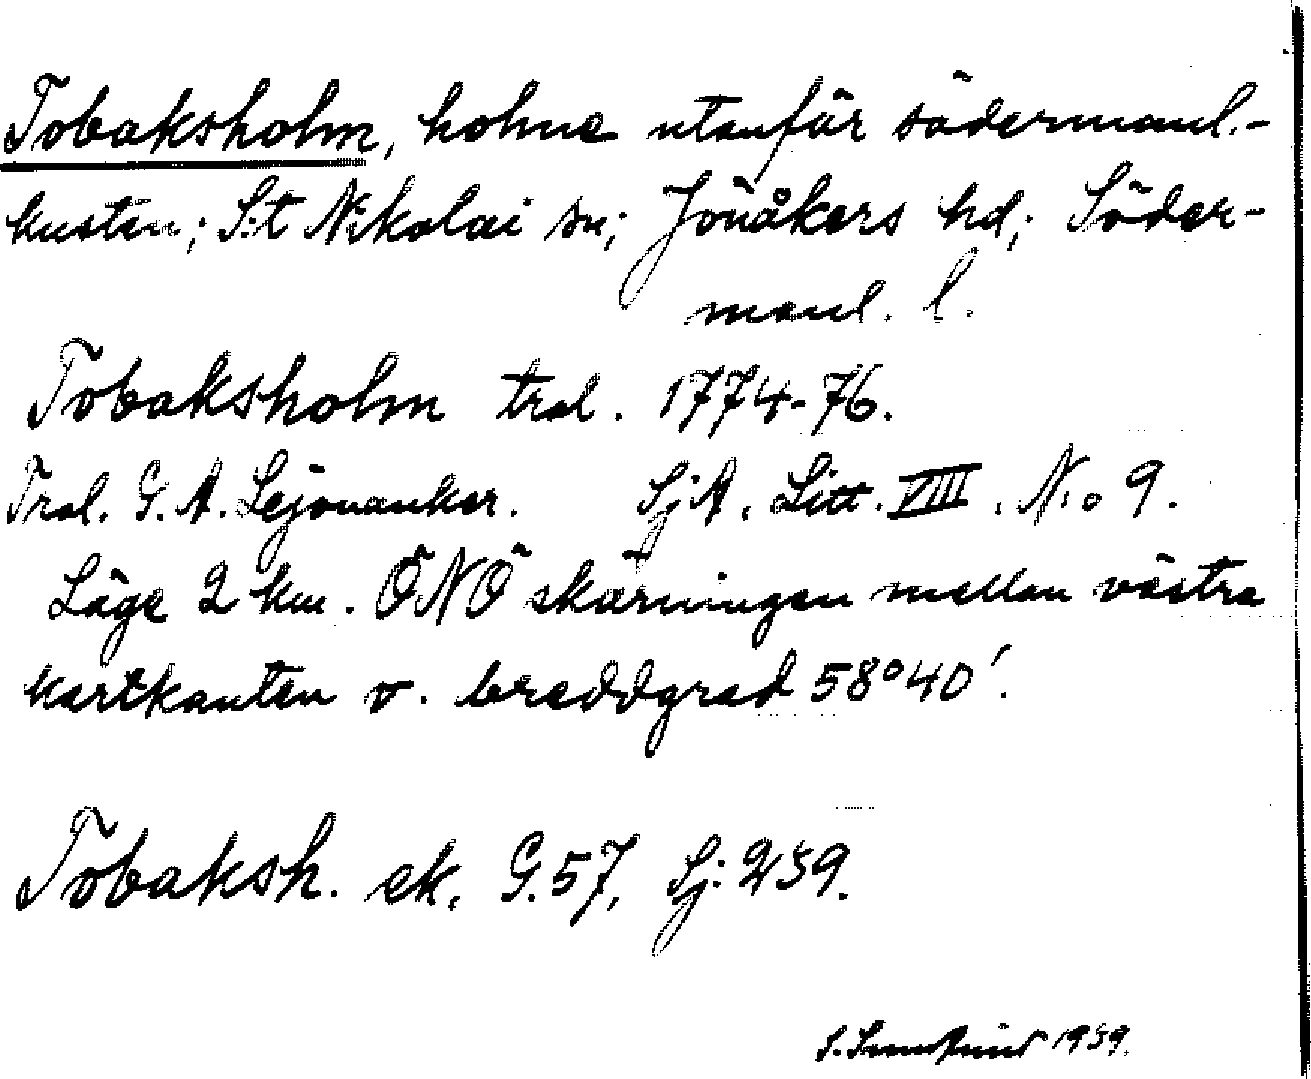 Tobaksholm, holme utanför södermanl.-
kusten; S:t Nikolai sn; Jönåkers hd; Söder-
manl. l.
Tobaksholm tral. 1774-76.
Tral. G. A. Lejonanker. SjA. Litt. VIII. No 9.
Läge 2 km. ÖNÖ skärningen mellan västra
kartkanten o. breddgrad 58°40'.
Tobaksh. ek. G.57, Sj:239.
S. 1939.